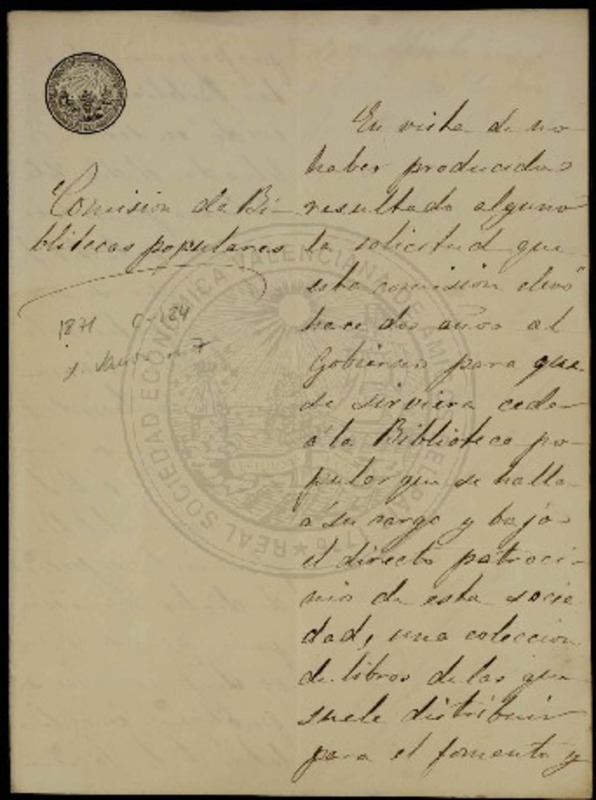 Comision de Bi-
blitecas populares
1871 C-184
n. 7
En vista de no
haber producido
resultado alguno
la solicitud que
esta comision elevó
hace dos años al
Gobierno para que
se sirviera ceder
á la Biblioteca po-
pular que se halla
á su cargo y bajo
el directo patroci-
nio de esta socie
dad, una coleccion
de libros de las que
suele distribuir
para el fomento y
REAL SOCIEDAD ECONÓMICA VALENCIANA DE AMIGOS DEL PAIS